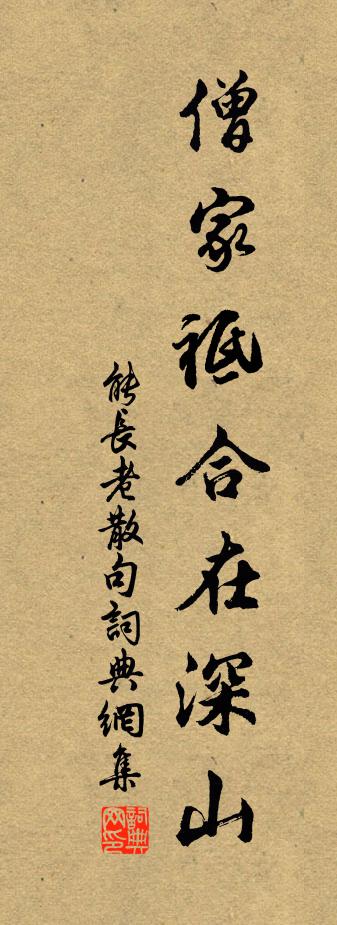 僧家祗合在深山
能長老散句詞典網集
詞典網印